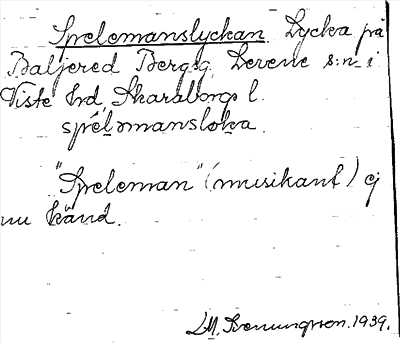 Spelemanslyckan. Lycka på
Baljered Bergsg. Levene s:n i
Viste hd, Skaraborgs l.
spelmansloka.
"Speleman" (musikant) ej
nu känd.
1939.